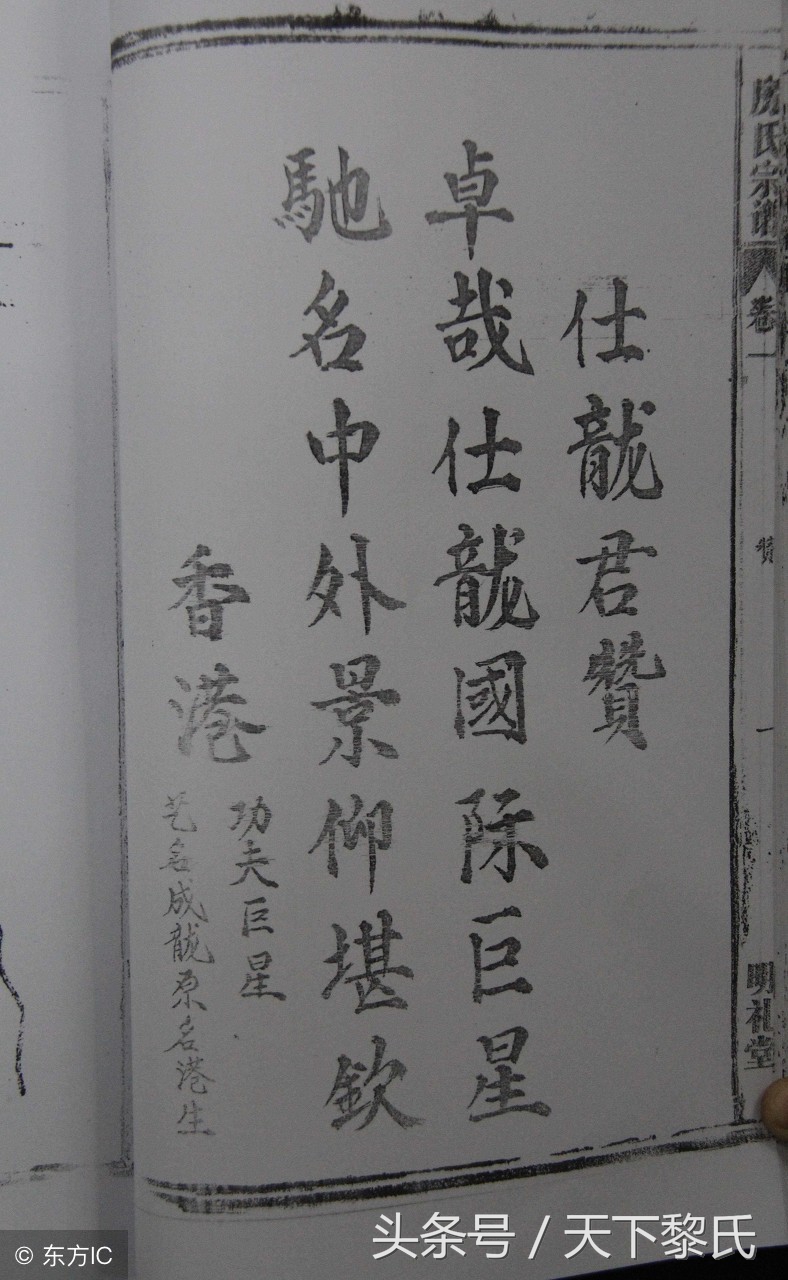 房氏宗譜 卷一 贊 一 明礼堂
仕龍君贊
卓哉仕龍國际巨星
馳名中外景仰堪欽
香港
功夫巨星
艺名成龍原名港生
© 东方IC
头条号 / 天下黎氏